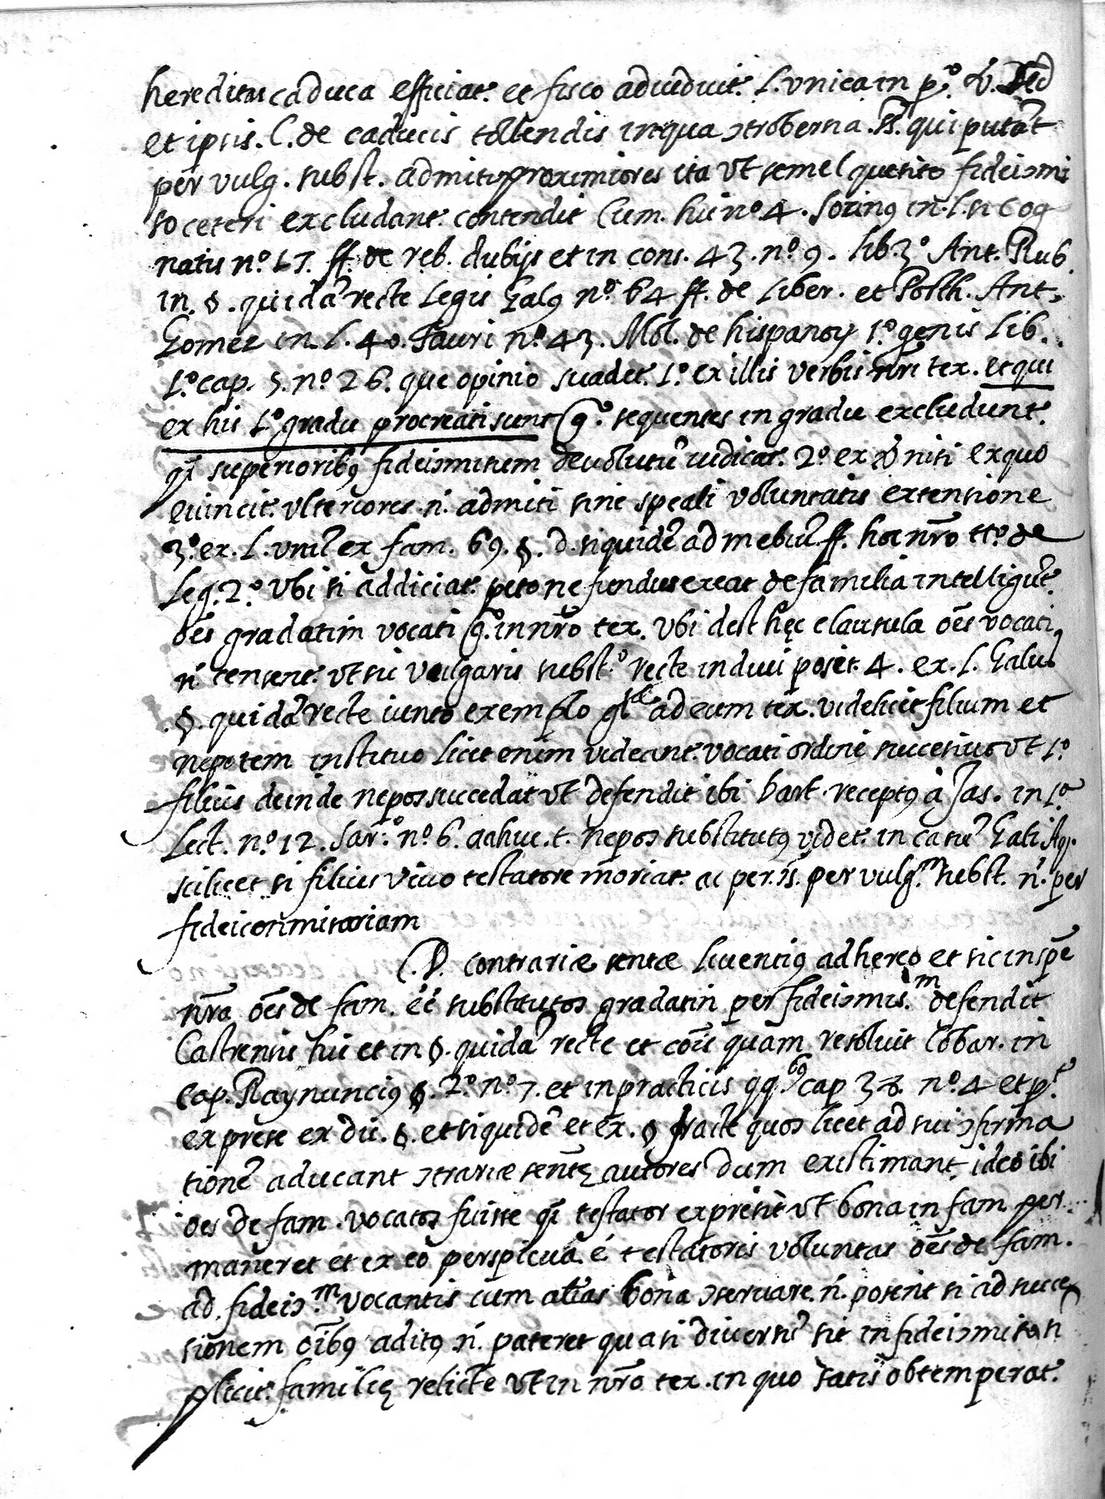 hereditas caduca efficiat. et fisco adiudicit. L. unica in p.º §. Sed
et ipsis. C. de caducis tollendis in qua ɔtroversia. qui putāt
per vulg. subst. admiti proximiores ita ut semel quesito fideiɔmi
so ceteri excludant. contendit Cum. hic nº 4. Socinus in L. si cog
natis nº 17. ff. de reb. dubijs et in cons. 43. nº 9. lib. 3º Ant. Rub.
in. §. quidā recte Legis Galꝯ nº 64 ff. de Liber. et Posth. Ant.
Gomez in. L. 40. Tauri nº 43. Mol. de hispanoꝝ 1º genis Lib.
1º cap. 5. nº 26. que opinio suadet. 1º ex illis verbis nr̄i tex. et qui
ex his 1º gradu procreati sunt gº. sequentes in gradu excludunt.
qī superioribꝯ fideiɔmissum devolutū iudicat. 2º ex quo
evincit. ulteriores n̄. admiti sine speāli voluntatis extensione
3º ex. L. unū ex fam. 69. §. d. siquidē ad me ff. hoc nr̄o tto. de
Leg. 2º ubi si addiciat. peto ne fundus exeat de familia intelligūt.
oēs gradatim vocati gº in nr̄o tex. ubi dest hęc clausula oēs vocati
n̄ censent. ut sic vulgaris subst.º recte induci poset. 4. ex. L. Galus
§. quidā recte iuncto exemplo ad eum tex. videlicet filium et
nepotem instituo licet enim videant. vocati ordine sucesivo ut 1º
filius deinde nepos succedat ut defendit ibi bart. receptꝯ à Jas. in 1ª
Lect. nº 12. Sar.º nº 6. adhuc. t. nepos substitutꝯ videt. in casu Gali Aq.
scilicet si filius vivo testatore moriat. ac per. per vulg.ᵐ subst. n̄. per
fideiconmisoriam
D. contrariæ sentæ liventiꝯ adhereo et sic in spē
nr̄a oēs de fam. eē substitutos gradatin per fideiɔmis.ᵐ defendit
Castrensis hic et in §. quidā recte et coīe quam resoluit Cobar. in
cap. Raynunciꝯ §. 2º nº 7. et in practicis qq.ᵇꝯ cap 38. nº 4 et
exprese ex du. §. et siquidē et ex. § fracte quos licet ad sui ɔfirma
tionē aducant ɔtrariæ sentę autores dum existimant ideo ibi
oēs de fam. vocatos fuisse qī testator expresit ut bona in fam per
maneret et ex eo perspicua é testatoris voluntas oēs de fam.
ad. fideiɔ.ᵐ vocantis cum alias bona ɔservare. n̄. posent si ad suce
sionem oībꝯ aditꝯ n̄. pateret quasi diversū sit in fideiɔmiso si
plicit. familię relicte ut in nr̄o tex. in quo satis obtemperat.